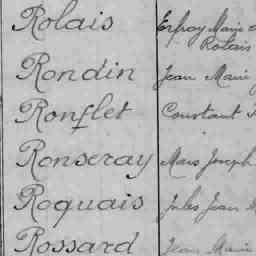 Rolais Enfroy Marie
Rolais
Rondin Jean Marie
Ronflet Constant
Ronseray Marc Joseph
Roquais Jules Jean
Rossard Jean Marie